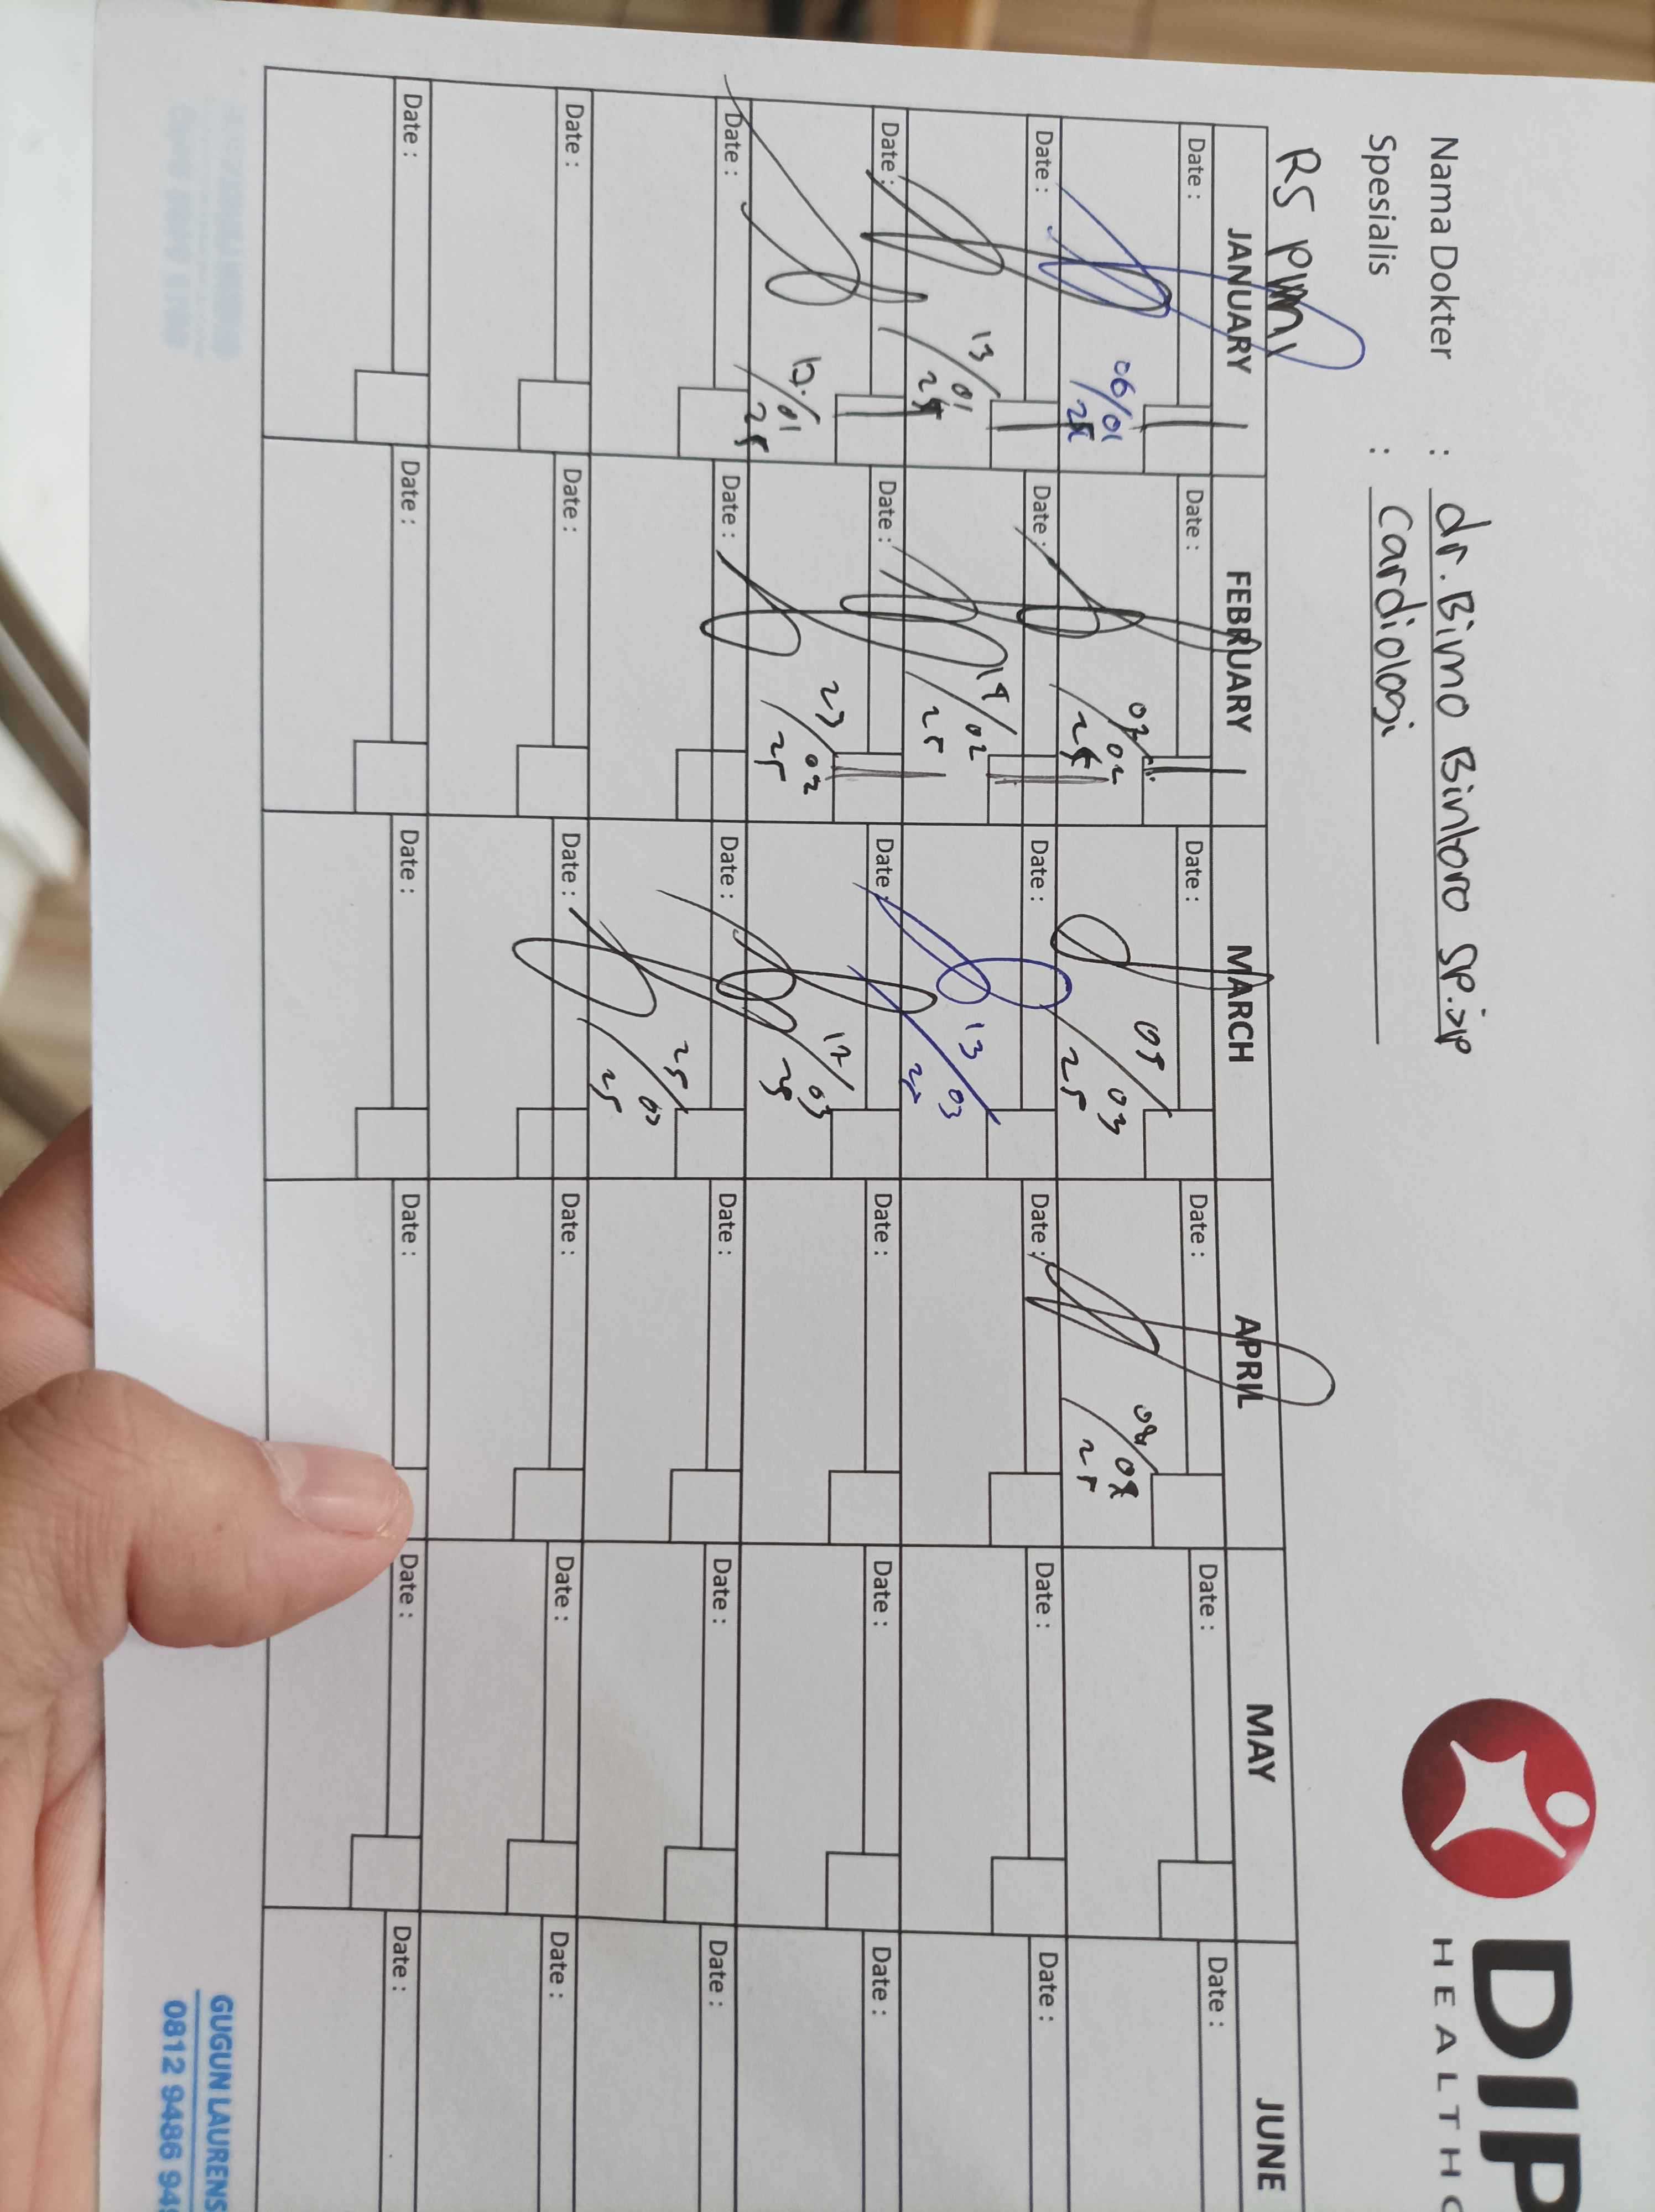 DIP
HEALTHC
Nama Dokter : dr. Bimo Bintoro SP.JP
Spesialis : Cardiologi
RS PMI
JANUARY FEBRUARY MARCH APRIL MAY JUNE
Date : Date : Date : Date : Date : Date :
06/01 25 03/02 25 05/03 25 08/04 25
Date : Date : Date : Date : Date : Date :
13/01 25 19/02 25 13/03 25
Date : Date : Date : Date : Date : Date :
/01 25 27/02 25 17/03 25
Date : Date : Date : Date : Date : Date :
25/03 25
Date : Date : Date : Date : Date : Date :
Date : Date : Date : Date : Date : Date :
GUGUN LAURENS
0812 9486 94